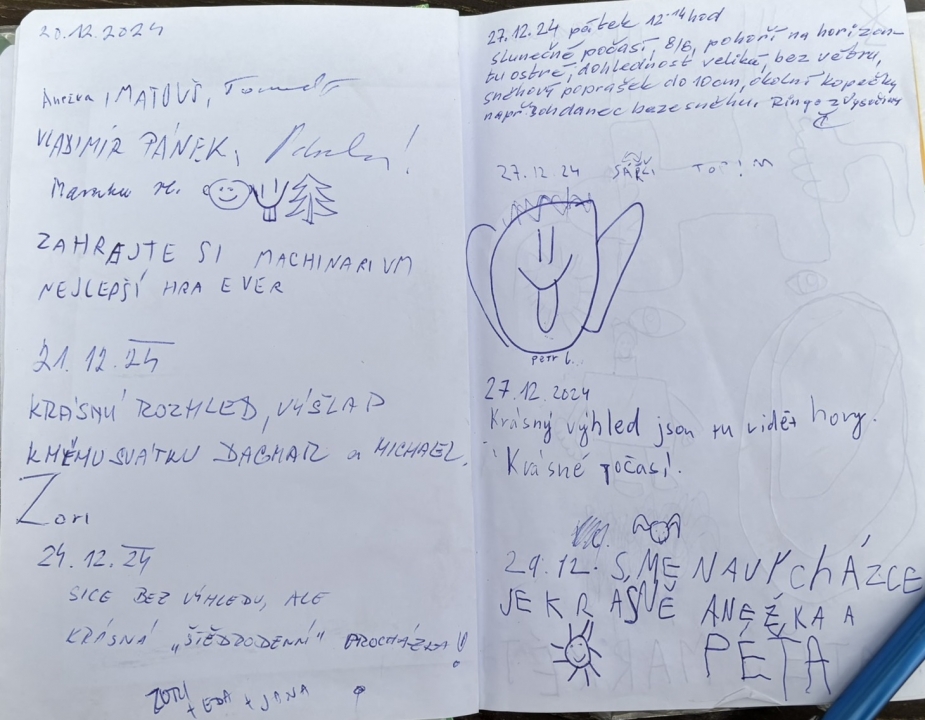 20.12.2024
MATOUŠ,
VLADIMÍR PÁNEK,
ZAHRAJTE SI MACHINARIUM
NEJLEPŠÍ HRA EVER
21.12.24
KRÁSNÝ ROZHLED, VÝŠLAP
K MÉMU SVÁTKU DAGMAR a MICHAEL.
24.12.24
SICE BEZ VÝHLEDU, ALE
KRÁSNÁ „ŠTĚDRODENNÍ" PROCHÁZKA!
+ EDA + JANA
27.12.24 pátek 12-14 hod
slunečné počasí, 8/8, pohoří na horizon-
tu ostré, dohlednost veliká, bez větru,
sněhový poprašek do 10cm, okolní kopečky
např. Bohdanec beze sněhu. Ringo z Vysočiny
27.12.24
Petr L.
27.12.2024
Krásný výhled jsou tu vidět hory.
Krásné počasí.
29.12. SME NAVYCHÁZCE
JE KRASNĚ ANEŽKA A
PÉTA